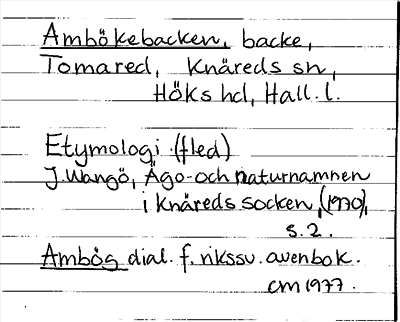 Ambökebacken, backe,
Tomared, Knäreds sn,
Höks hd, Hall. l.
Etymologi (fled)
J Wangö, Ägo- och naturnamnen
i Knäreds socken, (1970),
s. 2.
Ambög dial. f. rikssv. avenbok.
CM 1977.